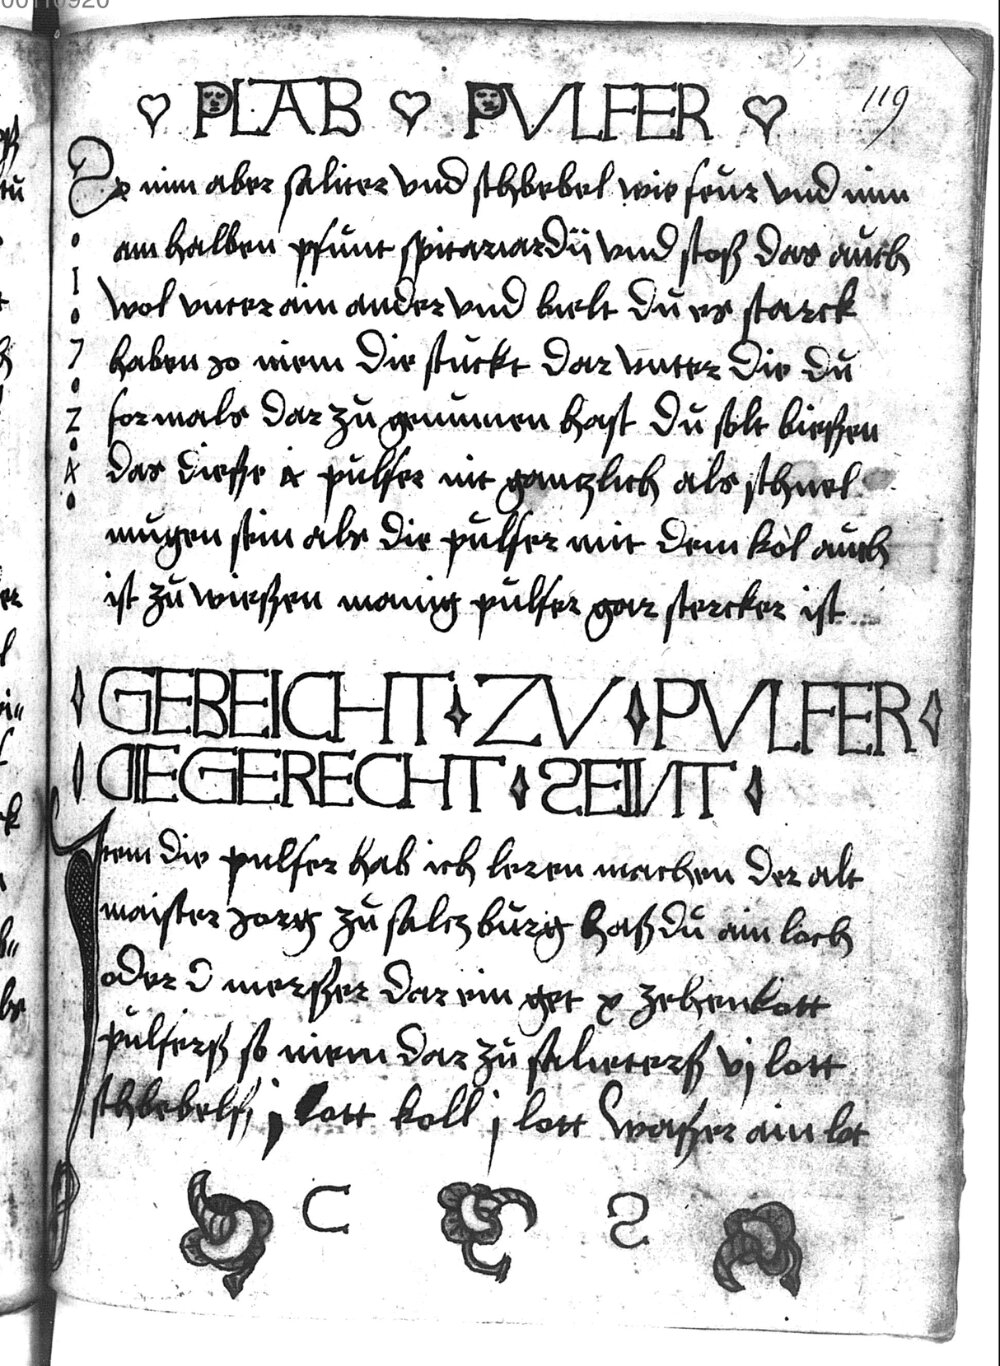 00110920
119
PLAB PVLFER
So nim aber saliter vnd schbebel wie feur vnd nim
am halben pfunt spicanardÿ vnd stosß das auch
wol vnter ain ander vnd bielt du es starck
haben so niem die stuckt dar vnter die du
formals dar zu genumen hast Du solt bießen
das dieße pulfer nit gantzlich als schnel
mugen sein als die pulfer mit dem kol auch
ist zu wießen manig pulfer gar stercker ist
I
7
Z
GEBEICHT ZV PVLFER
DIE GERECHT SEINT
Item die pulfer hab ich leren machen der alt
maister Jorg zu saltzburg haß du ain loch
oder mersser dar ein get x zehen lott
pulferß so niem dar zu salitterß vj lott
schbebelß j lott koll j lott Waßer ain lot
C S